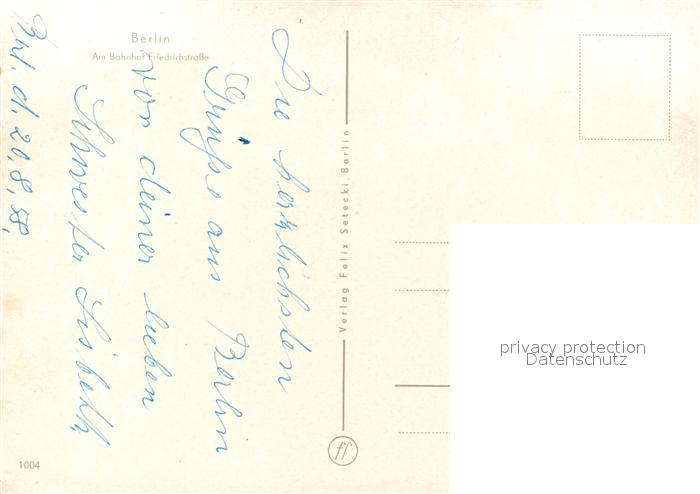 Berlin
Am Bahnhof Friedrichstraße
Brl. d. 20, 8, 58,
Die herzlichsten
Grüße aus Berlin
von deiner lieben
Schwester Lisbeth
Verlag Felix Setecki, Berlin
ff
1004
privacy protection
Datenschutz